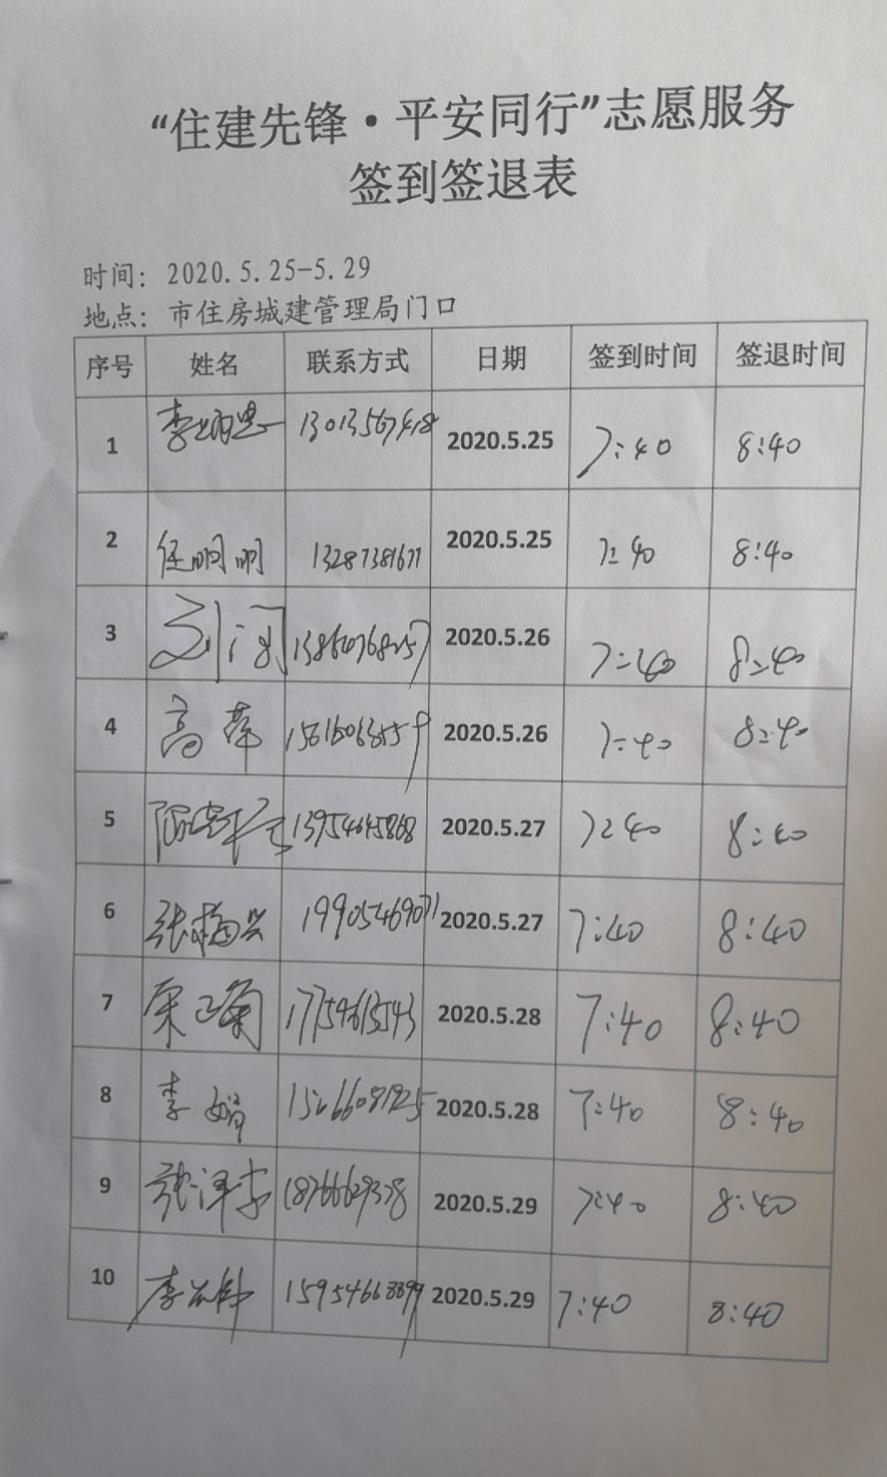 “住建先锋·平安同行”志愿服务
签到签退表
时间：2020.5.25-5.29
地点：市住房城建管理局门口
序号 姓名 联系方式 日期 签到时间 签退时间
1 2020.5.25 7:40 8:40
2 任明明 13287381671 2020.5.25 7:40 8:40
3 2020.5.26 7:40 8:40
4 高苹 2020.5.26 7:40 8:40
5 13954645868 2020.5.27 7:40 8:40
6 张梅兴 19905469071 2020.5.27 7:40 8:40
7 2020.5.28 7:40 8:40
8 李娟 2020.5.28 7:40 8:40
9 2020.5.29 7:40 8:40
10 15954668899 2020.5.29 7:40 8:40